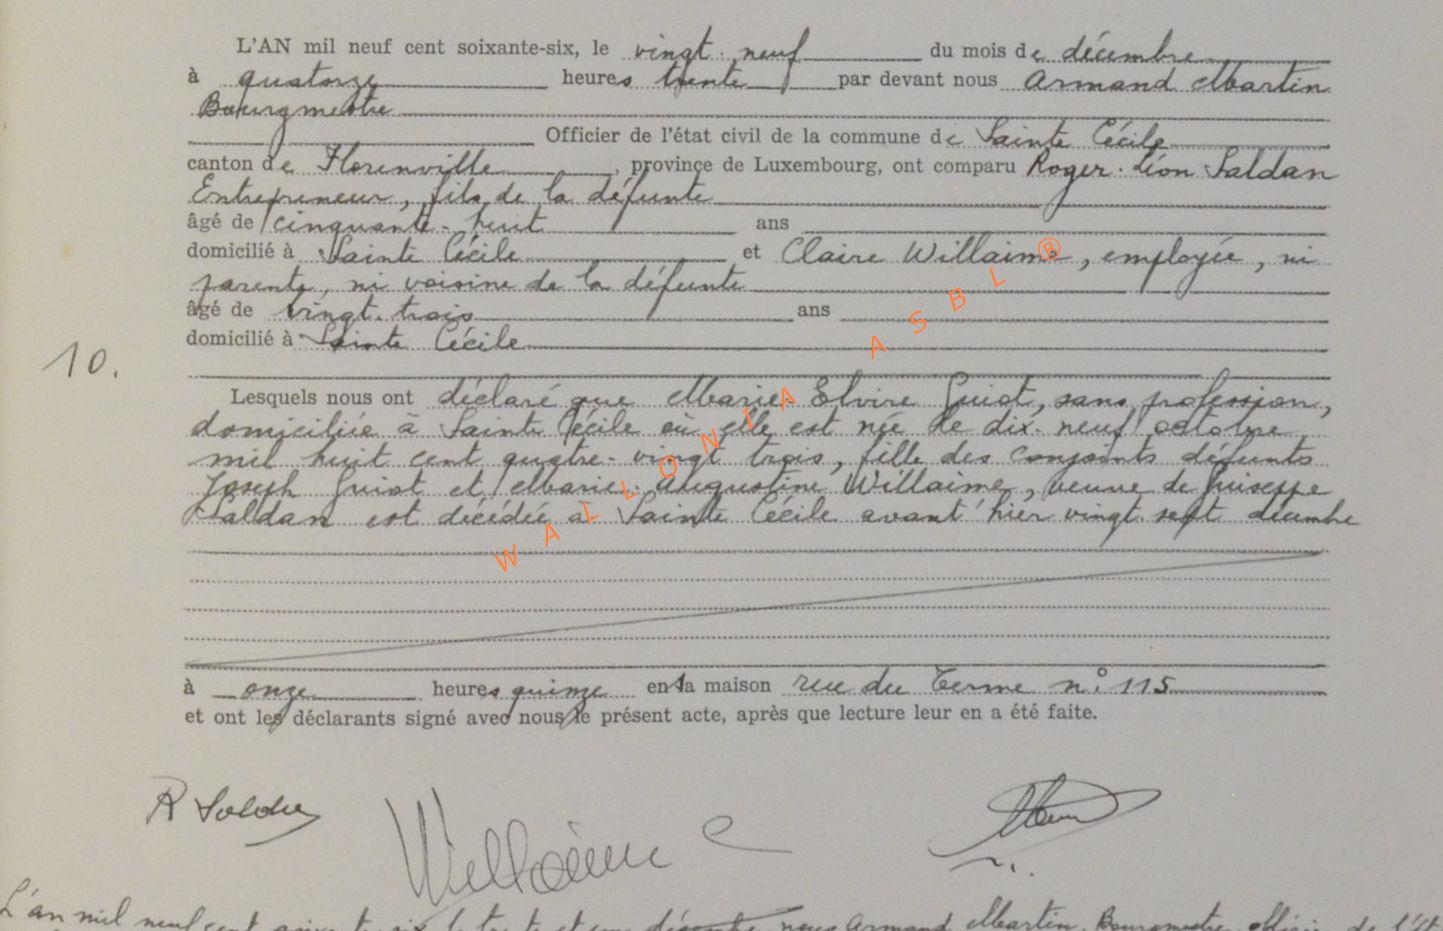 L'AN mil neuf cent soixante-six, le vingt-neuf du mois de décembre
à quatorze heures trente par devant nous Armand Martin
Bourgmestre
Officier de l'état civil de la commune de Sainte Cécile
canton de Florenville, province de Luxembourg, ont comparu Roger-Léon Saldan
Entrepreneur, fils de la défunte
âgé de cinquante-huit ans
domicilié à Sainte Cécile et Claire Willaime, employée, ni
parente, ni voisine de la défunte
âgé de vingt-trois ans
domicilié à Sainte Cécile
10.
Lesquels nous ont déclaré que Marie-Elvire Guiot, sans profession,
domiciliée à Sainte Cécile où elle est née le dix-neuf octobre
mil huit cent quatre-vingt trois, fille des conjoints défunts
Joseph Guiot et Marie-Augustine Willaime, veuve de Guiseppe
Saldan est décédée à Sainte Cécile avant hier vingt-sept décembre
à onze heures quinze en la maison rue du Terme n° 115
et ont les déclarants signé avec nous le présent acte, après que lecture leur en a été faite.
R Saldan
Willaime C
L'an mil neuf cent soixante-six le trente et un décembre nous Armand Martin, Bourgmestre, Officier de l'ét
WALLONIA ASBL ®